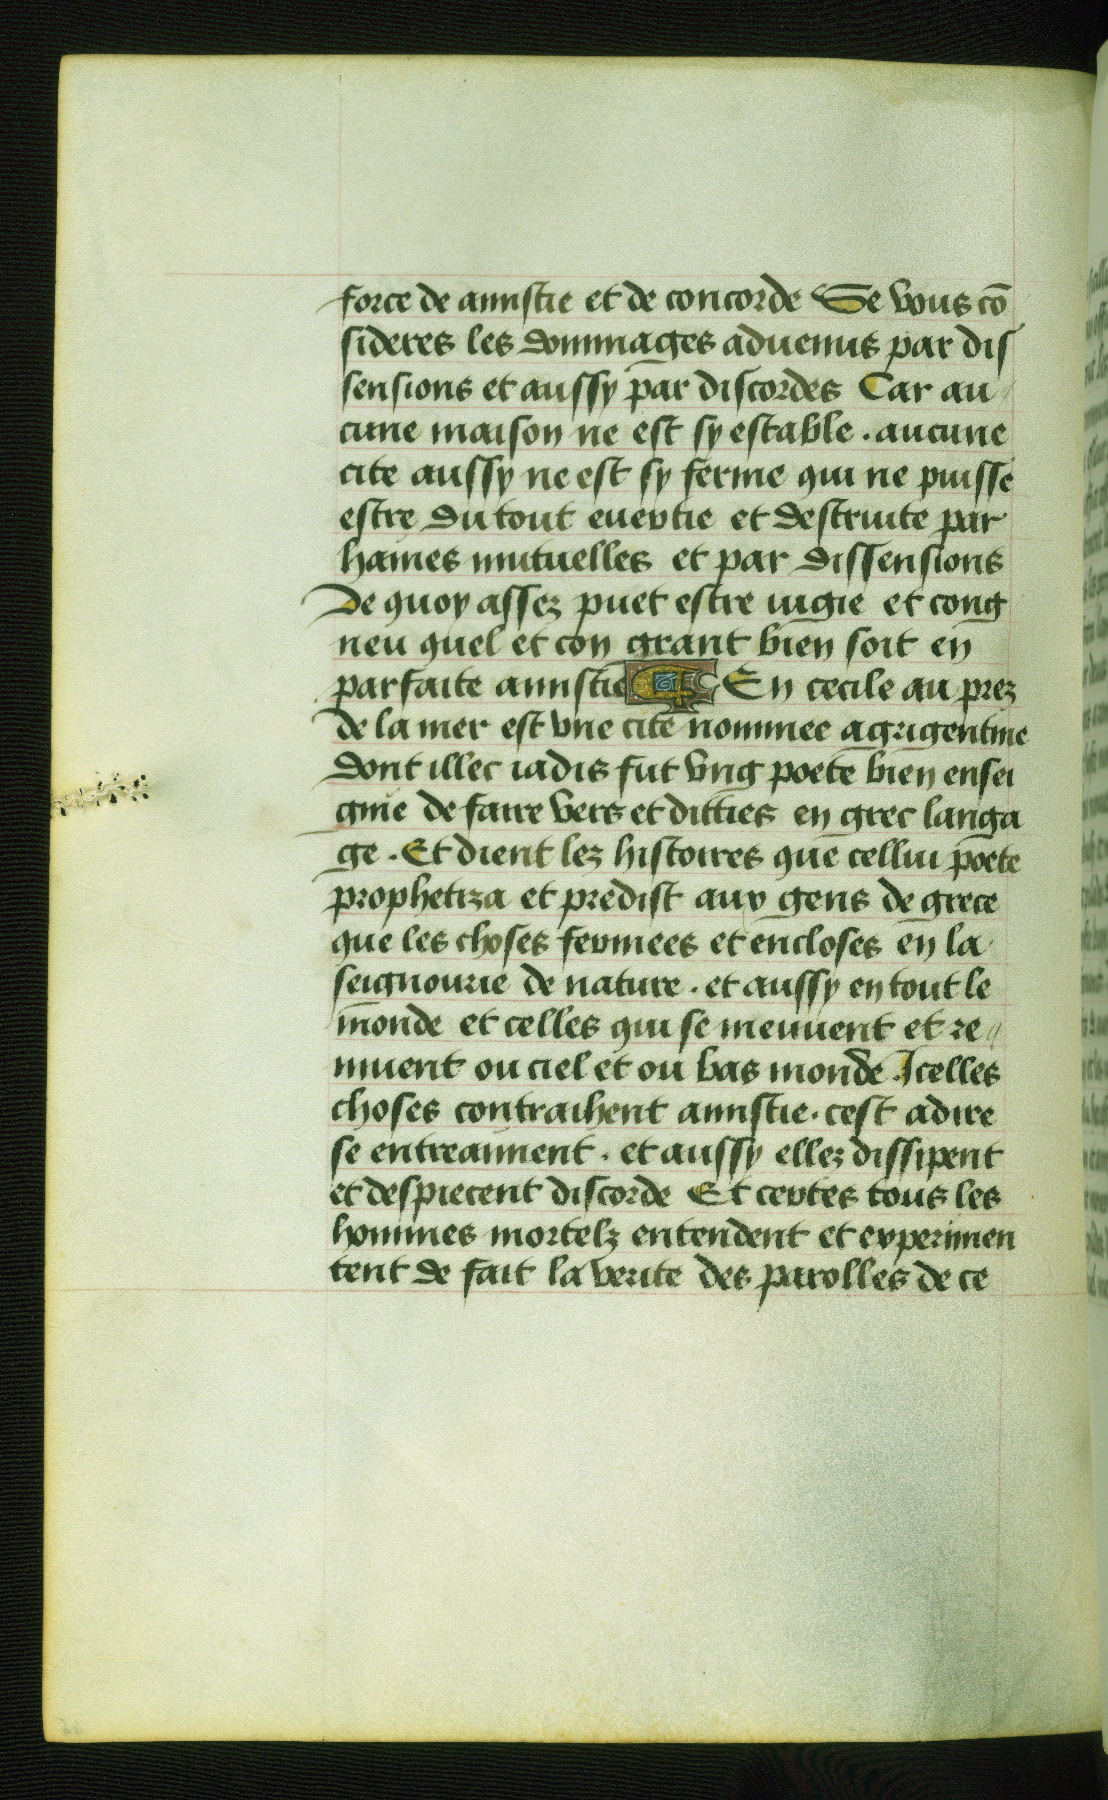 force de amistie et de concorde Se vous cō
sideres les dommages advenus par dis
sensions et aussy par discordes Car au
cune maison ne est sy estable . aucune
cite aussy ne est sy ferme qui ne puisse
estre du tout evertie et destruite par
haines mutuelles et par dissensions
De quoy assez puet estre iugie et cong
neu quel et con grant bien soit en
parfaite amistie ¶ En cecile au prez
de la mer est vne cite nommee agrigentine
dont illec iadis fut vng poete bien ensei
gnie de faire vers et ditties en grec langa
ge . Et dient lez histoires que cellui poete
prophetiza et predist aux gens de grece
que les choses fermees et encloses en la
seignourie de nature . et aussy en tout le
monde et celles qui se meuuent et re
muent ou ciel et ou bas monde . Icelles
choses contraihent amistie . cest adire
se entreaiment . et aussy ellez dissipent
et despiecent discorde Et certes tous les
hommes mortelz entendent et experimen
tent de fait la verite des parolles de ce